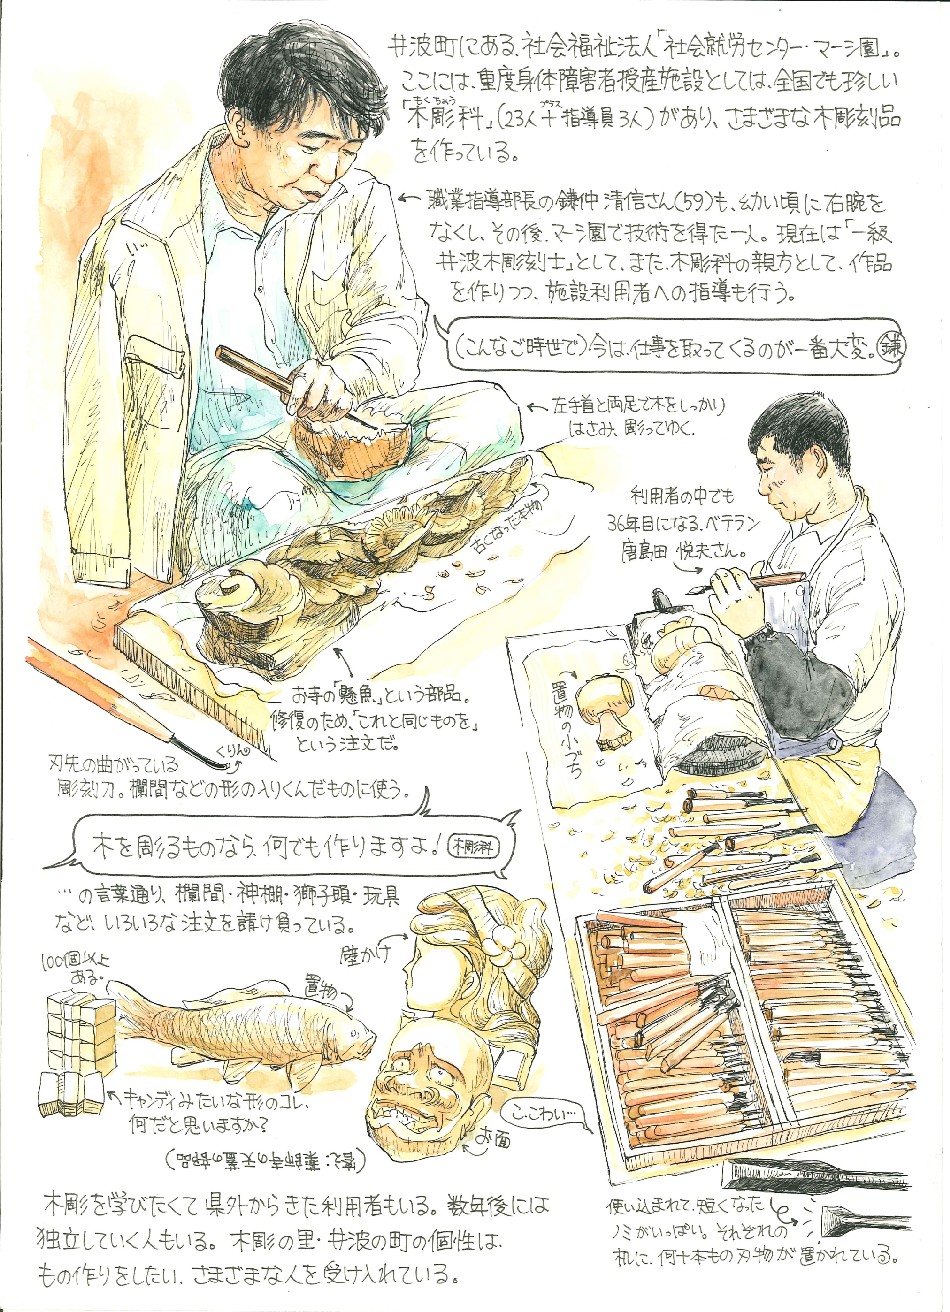 井波町にある、社会福祉法人「社会就労センター・マーシ園」。
ここには、重度身体障害者授産施設としては、全国でも珍しい
「木彫科」(23人+指導員3人)があり、さまざまな木彫刻品
もくちょう
プラス
を作っている。
←職業指導部長の鎌仲清信さん(59)も、幼い頃に右腕を
なくし、その後、マーシ園で技術を得た一人。現在は「一級
井波木彫刻士」として、また、木彫科の親方として、作品
を作りつつ、施設利用者への指導も行う。
(こんなご時世で)今は、仕事を取ってくるのが一番大変。鎌
←左手首と両足で木をしっかり
はさみ、彫ってゆく。
利用者の中でも
36年目になる、ベテラン
唐島田 悦夫さん。
古くなった本物
お寺の「懸魚」という部品。
修復のため、「これと同じものを」
という注文だ。
置物の小づち
くりん
刃先の曲がっている
彫刻刀。欄間などの形の入りくんだものに使う。
木を彫るものなら、何でも作りますよ!木彫科
…の言葉通り、欄間・神棚・獅子頭・玩具
など、いろいろな注文を請け負っている。
壁かけ
100個以上
ある。
置物
キャンディみたいな形のコレ、
何だと思いますか?
(答え:薬師寺の天蓋の部品)
お面
こ、こわい…
木彫を学びたくて県外からきた利用者もいる。数年後には
独立していく人もいる。木彫の里・井波の町の個性は、
もの作りをしたい、さまざまな人を受け入れている。
使い込まれて、短くなった
ノミがいっぱい。それぞれの
机に、何十本もの刃物が置かれている。